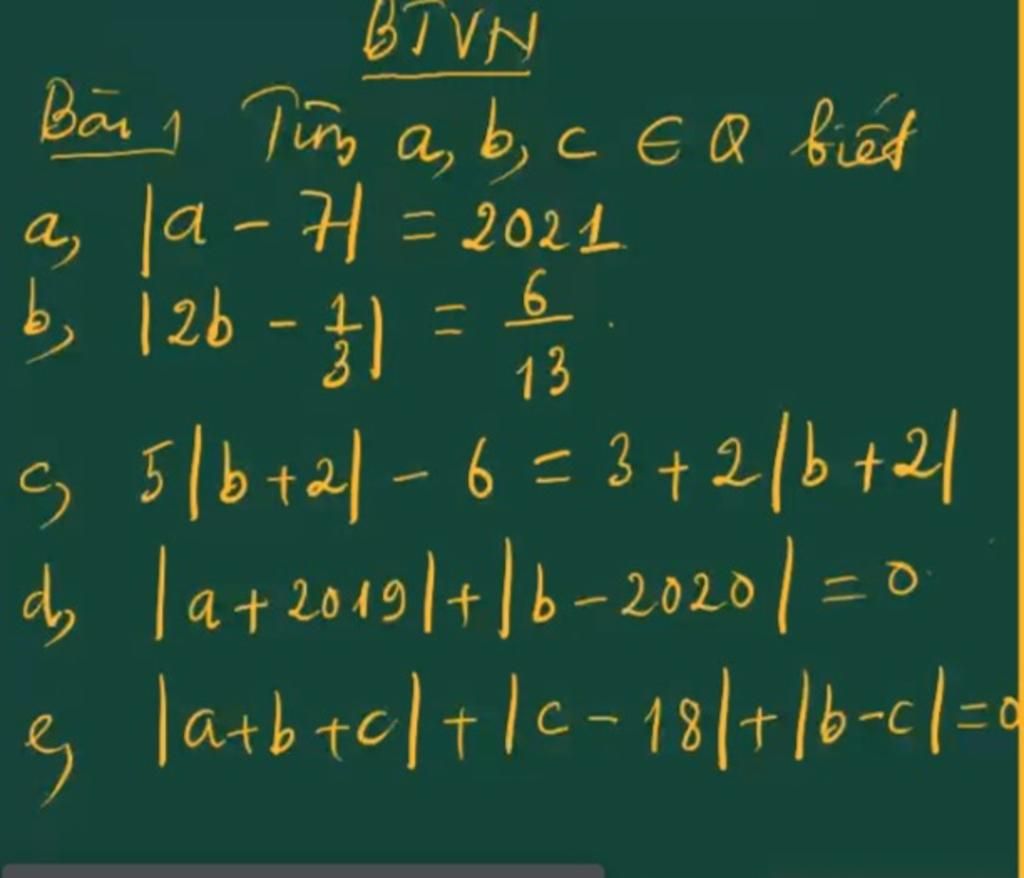 BTVN
Bài 1 Tìm a, b, c ∈ Q biết
a, |a - 7| = 2021
b, |2b - 1/3| = 6/13.
c, 5|b+2| - 6 = 3 + 2|b+2|
d, |a+2019|+|b-2020| = 0
e, |a+b+c|+|c-18|+|b-c|=0